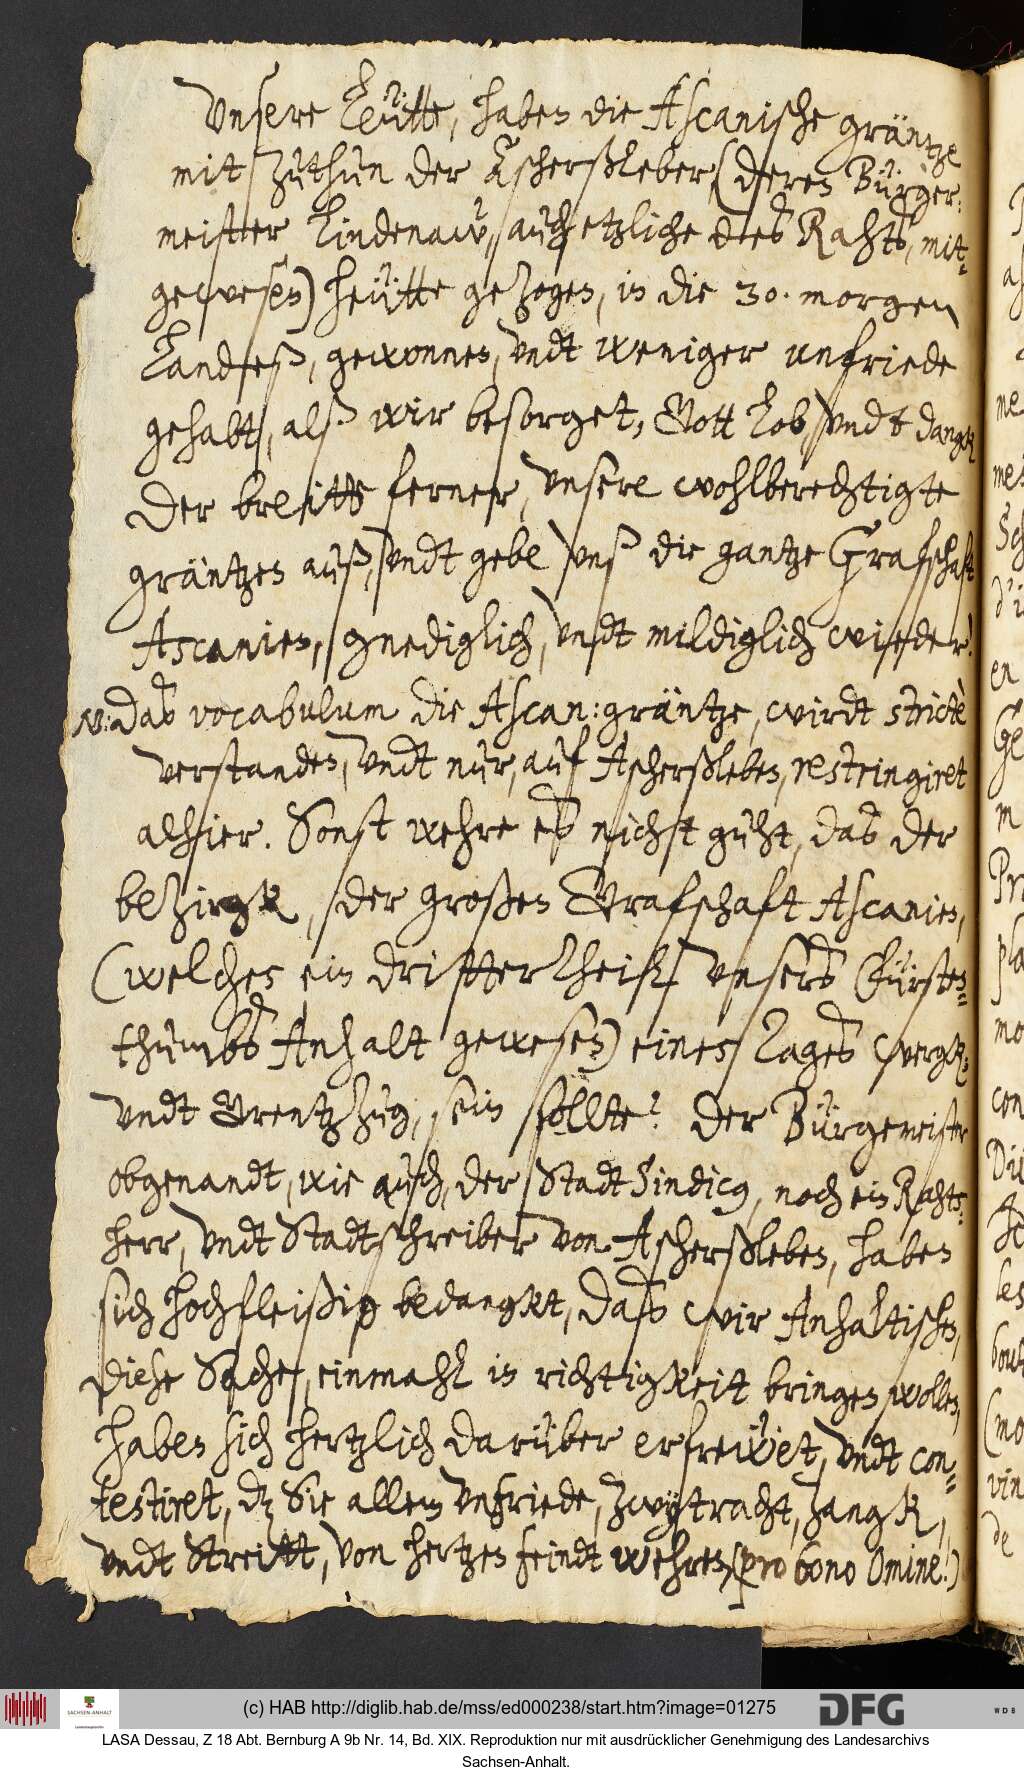 Vnsere Leütte, haben die Ascanische gräntze
mit zuthun der Ascherßleber, (deren Bürger:
meister Lindenaw, auch etzliche des Rahts, mit-
gewesen) heütte gezogen, in die 30. morgen
Landeß, gewonnen, undt weniger unfriede
gehabt, alß wir besorget, Gott lob, undt dangk
Der breitte ferner, unsere wohlberechtigte
gräntzen auß, undt gebe unß die gantze Grafschaft
Ascanien, gnediglich, undt mildiglich wieder!
NB: Das vocabulum die Ascan: gräntze, wirdt strictè
verstanden, undt nur, auf Ascherßleben, restringiret
alhier. Sonst wehre es nichst guht, das der
bezirgk, der großen Grafschaft Ascanien,
(welches ein dritter theil unsers Fürsten-
thumbs Anhalt gewesen) eines tages wergk:
undt Grentzzug, sein sollte? Der Bürgemeister
obgenandt, wie auch, der Stadt Sindicus, noch ein Rahts:
herr, undt Stadtschreiber von Ascherßleben, haben
sich hochfleißig bedangkt, das wir Anhaltischen,
diese Sache, einmahl in richtigkeit bringen wollen,
haben sich hertzlich darüber erfreẅet, undt con-
testiret, dz Sie allem unfriede, zwytracht, zangk,
undt Streitt, von hertzen feindt wehren, (pro bono Omine!)
(c) HAB http://diglib.hab.de/mss/ed000238/start.htm?image=01275
SACHSEN-ANHALT
DFG
WDB
LASA Dessau, Z 18 Abt. Bernburg A 9b Nr. 14, Bd. XIX. Reproduktion nur mit ausdrücklicher Genehmigung des Landesarchivs
Sachsen-Anhalt.